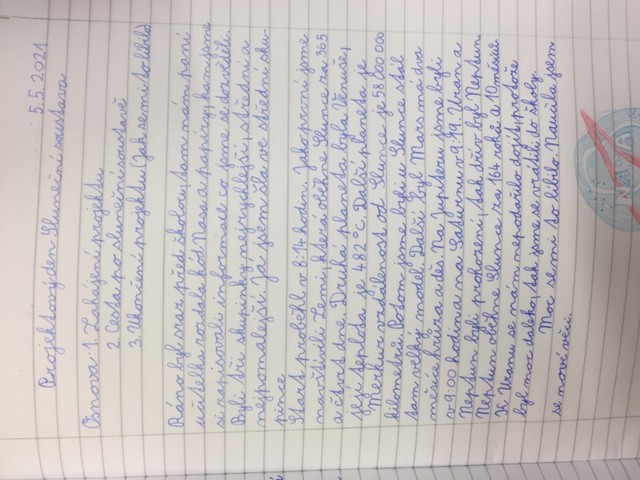 5.5.2021
Projektový den Sluneční soustava
Osnova: 1. Zahájení projektu
2. Cesta po sluneční soustavě
3. Ukončení projektu (Jak se mi to líbilo)
Ráno byl sraz před školou, tam nám paní
učitelka rozdala kód Nasa a papíry, kam jsme
si zapisovali informace co jsme se dozvěděli.
Byli tři skupinky nejrychlejší, střední a
nejpomalejší. Já jsem šla ve střední sku-
pině.
Start proběhl v 8:14 hodin. Jako první jsme
navštívili Zemi, která oběhne Slunce za 365
a čtvrt dne. Druhá planeta byla Venuše,
její teplota je 482°C. Další planeta je
Merkur vzdálenost od Slunce je 58 000 000
kilometrů. Potom jsme byli u Slunce stál
tam velký model. Další byl Mars má dva
měsíce hrůza a děs. Na Jupiteru jsme byli
v 9:00 hodin a na Saturnu v 9:19. Uran a
Neptun byli prohození, tak dřív byl Neptun
Neptun oběhne Slunce za 164 roků a 10 měsíců
K Uranu se nám nepodařilo dojít, protože
byl moc daleko, tak jsme se vrátili do školy.
Moc se mi to líbilo. Naučila jsem
se nové věci.
NASA